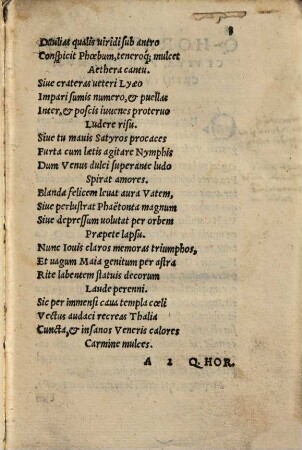 Daulias qualis uiridi sub antro
Conspicit Phœbum, teneroq́; mulcet
Aethera cantu.
Siue crateras ueteri Lyæo
Impari sumis numero, & puellas
Inter, & poscis iuuenes proteruo
Ludere risu.
Siue tu mauis Satyros procaces
Furta cum lætis agitare Nymphis
Dum Venus dulci superante ludo
Spirat amores.
Blanda felicem leuat aura Vatem,
Siue perlustrat Phaëtonta magnum
Siue depressum uolutat per orbem
Præpete lapsu.
Nunc Iouis claros memoras triumphos,
Et uagum Maia genitum per astra
Rite labentem statuis decorum
Laude perenni.
Sic per immensi caua templa cœli
Vectus audaci recreas Thalia
Cuncta, & insanos Veneris calores
Carmine mulces.
A 2 Q. HOR.